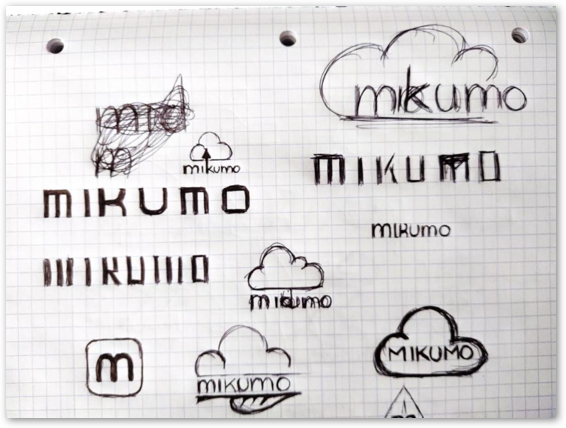 mikumo
mikumo
MIKUMO
MIKUMO
mikumo
MIKUMO
mikumo
m
MIKUMO
MIKUMO